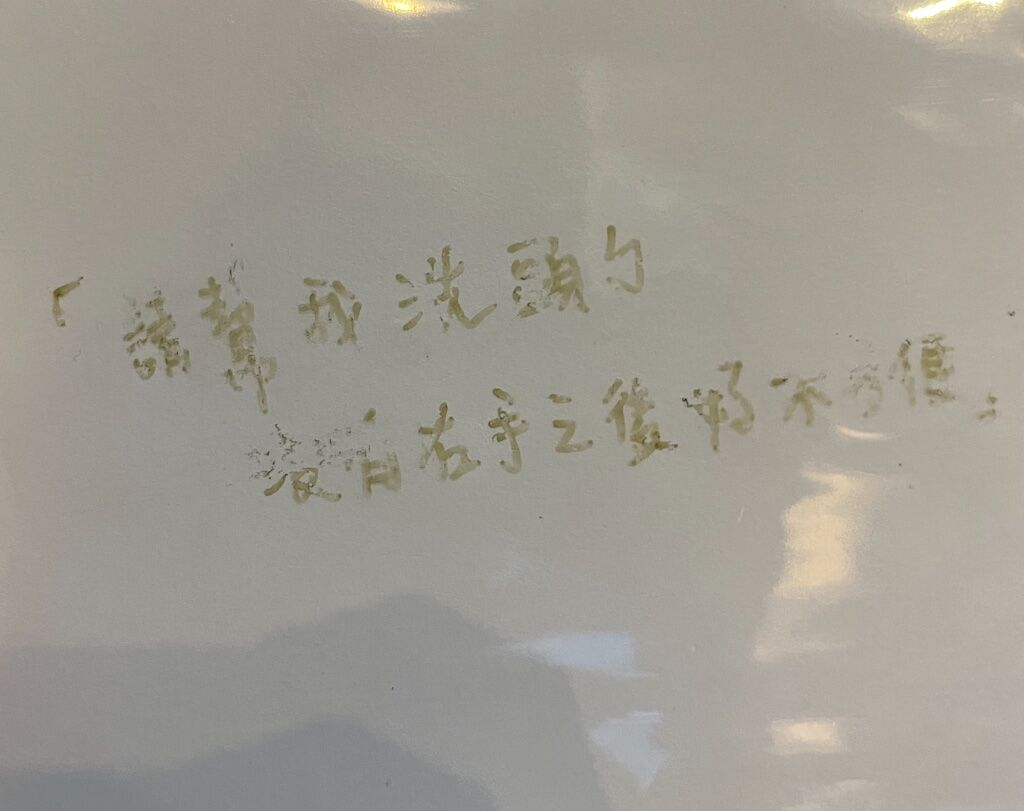 「請幫我洗頭」
沒有右手之後好不方便。